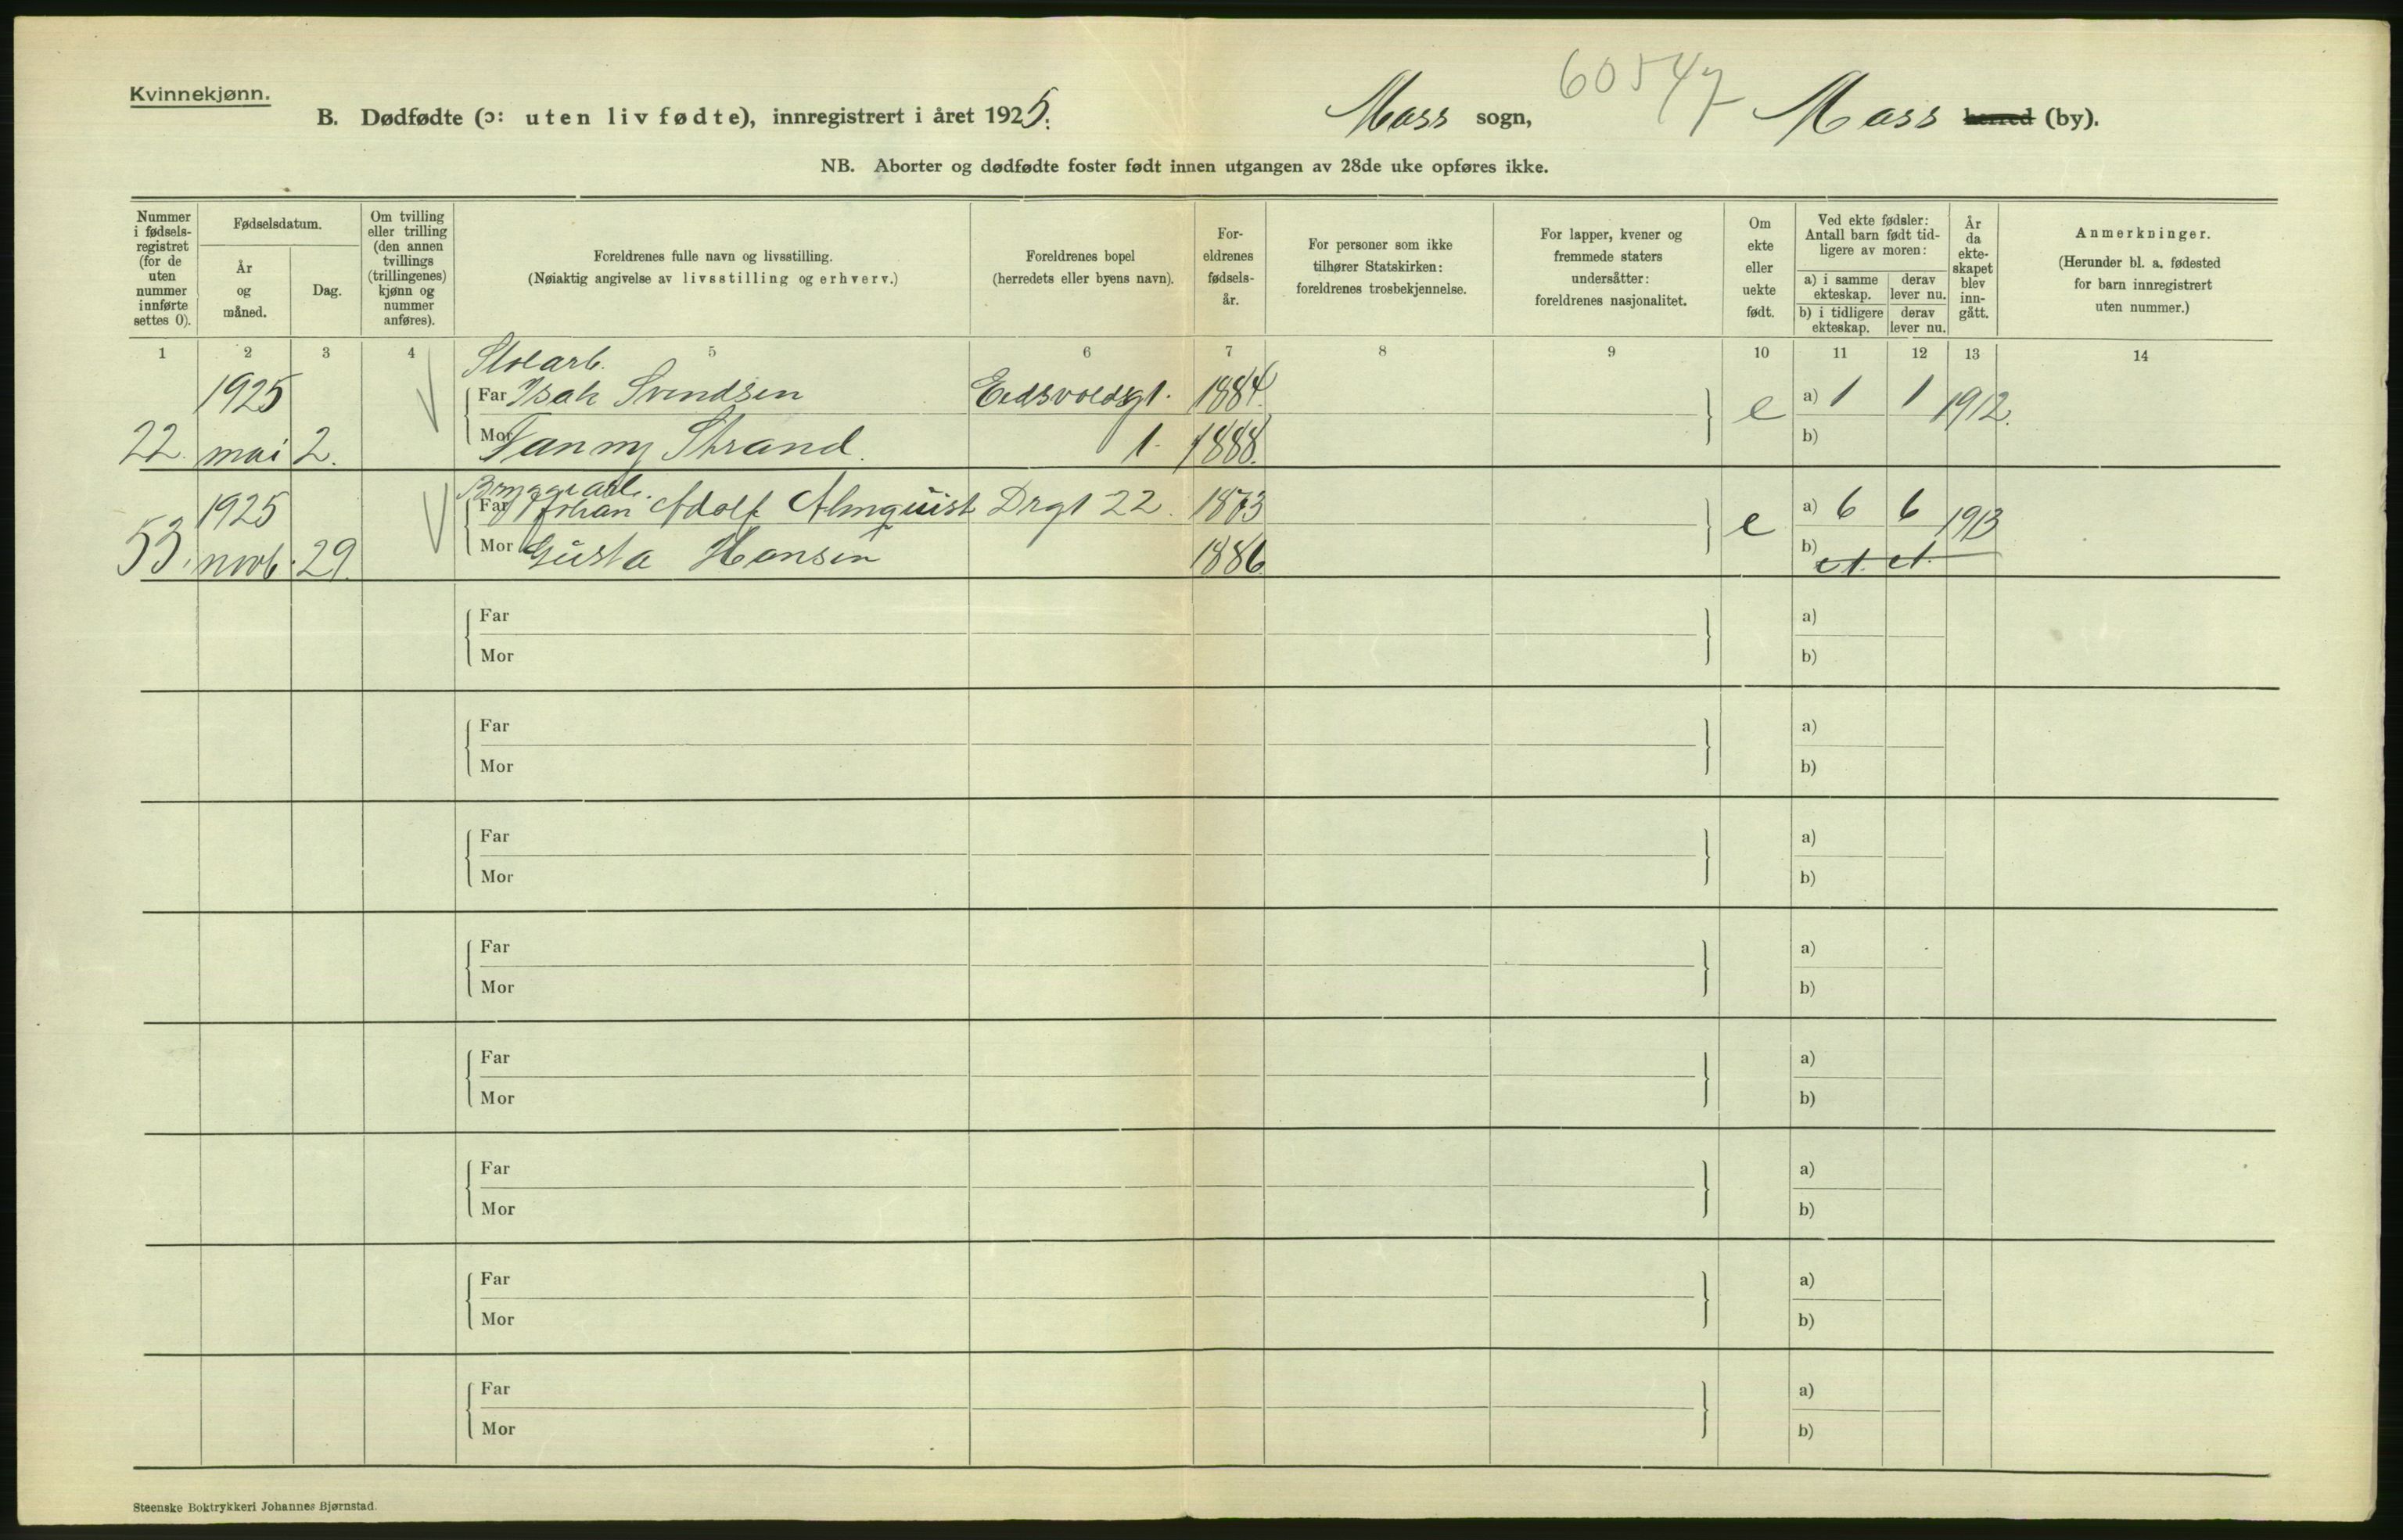 Kvinnekjønn.
60547
B. Dødfødte (ɔ: uten liv fødte), innregistrert i året 1925. Moss sogn, Moss herred (by).
NB. Aborter og dødfødte foster født innen utgangen av 28de uke opføres ikke.
Nummer i fødsels-registret (for de uten nummer innførte settes 0).
Fødselsdatum.
År og måned.
Dag.
Om tvilling eller trilling (den annen tvillings (trillingenes) kjønn og nummer anføres).
Foreldrenes fulle navn og livsstilling.
(Nøiaktig angivelse av livsstilling og erhverv.)
Foreldrenes bopel
(herredets eller byens navn).
For-eldrenes fødsels-år.
For personer som ikke tilhører Statskirken: foreldrenes trosbekjennelse.
For lapper, kvener og fremmede staters undersåtter: foreldrenes nasjonalitet.
Om ekte eller uekte født.
Ved ekte fødsler: Antall barn født tid-ligere av moren:
a) i samme ekteskap. derav lever nu.
b) i tidligere ekteskap. derav lever nu.
År da ekte-skapet blev inn-gått.
Anmerkninger.
(Herunder bl. a. fødested for barn innregistrert uten nummer.)
1 2 3 4 5 6 7 8 9 10 11 12 13 14
1925 Far Isak Svendsen Eidsvoldsgt. 1884 e a) 1 1 1912.
22 mai 2. Mor Fanny Strand. 1. 1888. b)
Bryggearb.
1925 Far Johan Adolf Almquist Drgt 22. 1873 e a) 6 6 1913
53. novb. 29. Mor Gusta Hansen 1886 b)
Far a)
Mor b)
Far a)
Mor b)
Far a)
Mor b)
Far a)
Mor b)
Far a)
Mor b)
Far a)
Mor b)
Far a)
Mor b)
Far a)
Mor b)
Steenske Boktrykkeri Johannes Bjørnstad.